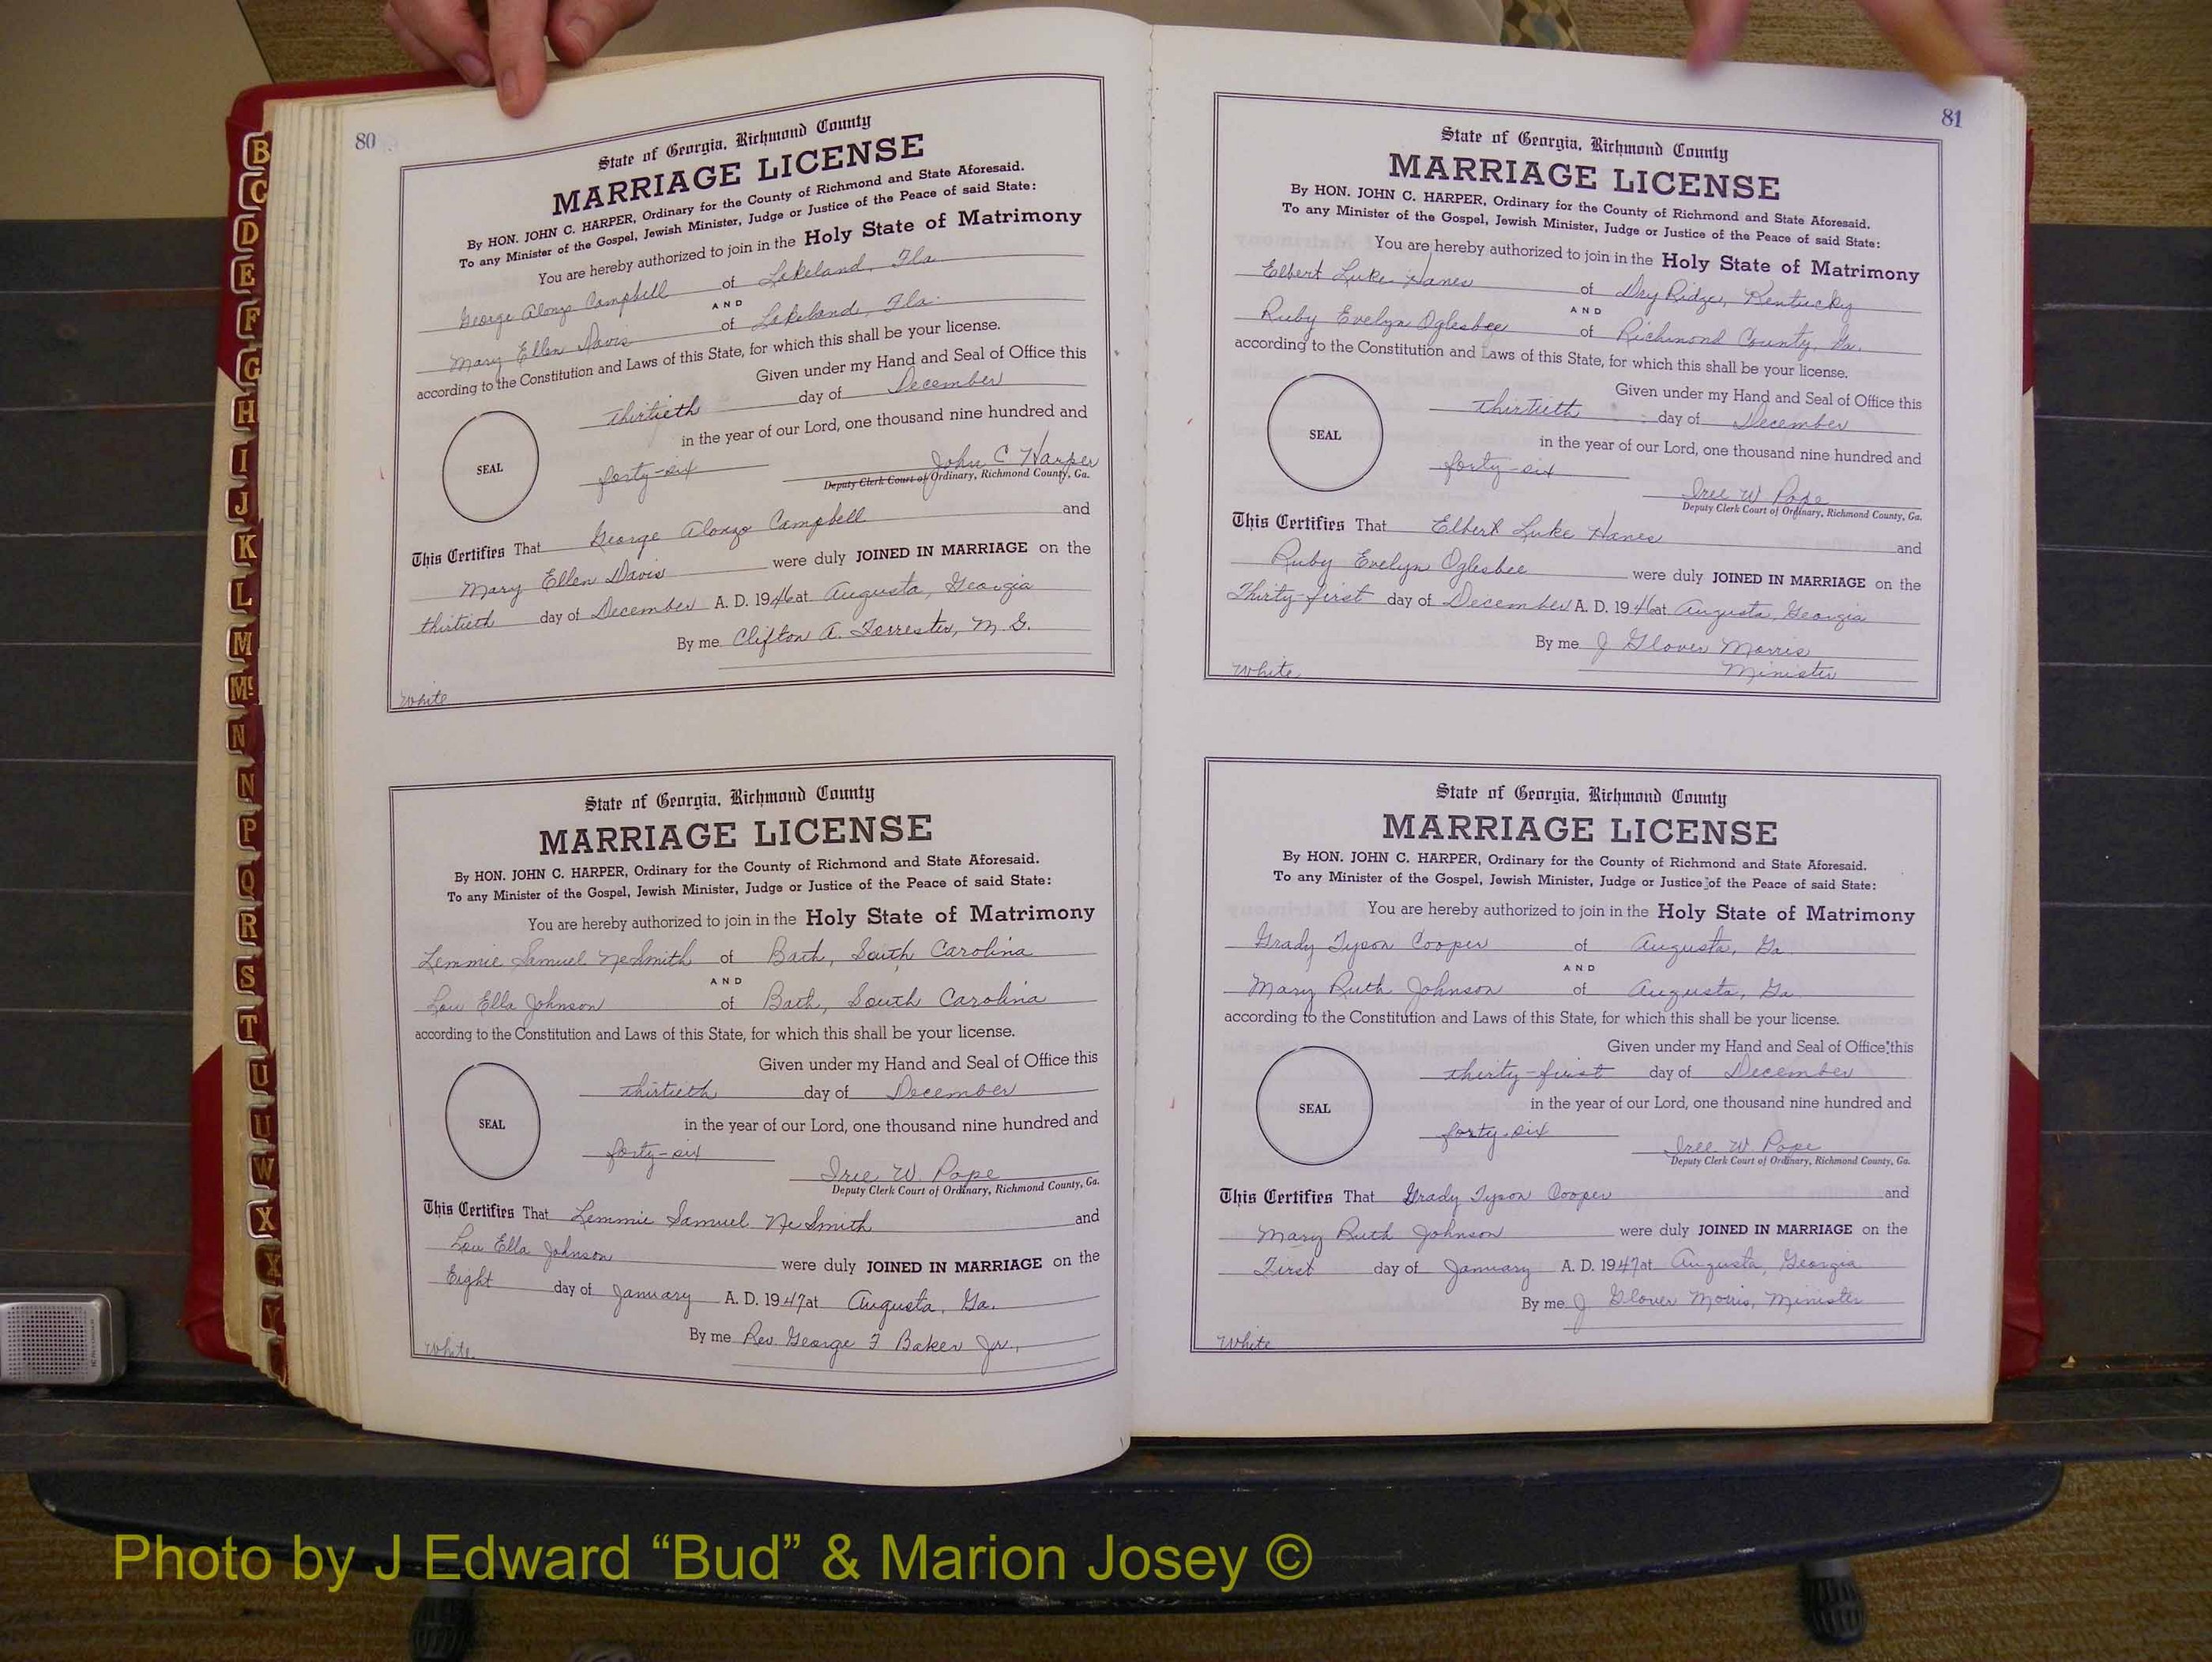 80
State of Georgia, Richmond County
MARRIAGE LICENSE
By HON. JOHN C. HARPER, Ordinary for the County of Richmond and State Aforesaid.
To any Minister of the Gospel, Jewish Minister, Judge or Justice of the Peace of said State:
You are hereby authorized to join in the Holy State of Matrimony
George Alonzo Campbell of Lakeland, Fla.
AND
Mary Ellen Davis of Lakeland, Fla.
according to the Constitution and Laws of this State, for which this shall be your license.
Given under my Hand and Seal of Office this
thirtieth day of December
in the year of our Lord, one thousand nine hundred and
SEAL
forty-six John C Harper
Deputy Clerk Court of Ordinary, Richmond County, Ga.
This Certifies That George Alonzo Campbell and
Mary Ellen Davis were duly JOINED IN MARRIAGE on the
thirtieth day of December A. D. 1946 at Augusta, Georgia
By me Clifton A. Forrester, M. G.
White
State of Georgia, Richmond County
MARRIAGE LICENSE
By HON. JOHN C. HARPER, Ordinary for the County of Richmond and State Aforesaid.
To any Minister of the Gospel, Jewish Minister, Judge or Justice of the Peace of said State:
You are hereby authorized to join in the Holy State of Matrimony
Lemmie Samuel NeSmith of Bath, South Carolina
AND
Lou Ella Johnson of Bath, South Carolina
according to the Constitution and Laws of this State, for which this shall be your license.
Given under my Hand and Seal of Office this
thirtieth day of December
in the year of our Lord, one thousand nine hundred and
SEAL
forty-six Iree W. Pope
Deputy Clerk Court of Ordinary, Richmond County, Ga.
This Certifies That Lemmie Samuel NeSmith and
Lou Ella Johnson were duly JOINED IN MARRIAGE on the
Eight day of January A. D. 1947 at Augusta, Ga.
By me Rev. George F Baker Jr.,
White
81
State of Georgia, Richmond County
MARRIAGE LICENSE
By HON. JOHN C. HARPER, Ordinary for the County of Richmond and State Aforesaid.
To any Minister of the Gospel, Jewish Minister, Judge or Justice of the Peace of said State:
You are hereby authorized to join in the Holy State of Matrimony
Elbert Luke Hanes of Dry Ridge, Kentucky
AND
Ruby Evelyn Oglesbee of Richmond County, Ga.
according to the Constitution and Laws of this State, for which this shall be your license.
Given under my Hand and Seal of Office this
thirtieth day of December
in the year of our Lord, one thousand nine hundred and
SEAL
forty-six Iree W Pope
Deputy Clerk Court of Ordinary, Richmond County, Ga.
This Certifies That Elbert Luke Hanes and
Ruby Evelyn Oglesbee were duly JOINED IN MARRIAGE on the
Thirty-first day of December A. D. 1946 at Augusta, Georgia
By me J Glover Morris
Minister
White
State of Georgia, Richmond County
MARRIAGE LICENSE
By HON. JOHN C. HARPER, Ordinary for the County of Richmond and State Aforesaid.
To any Minister of the Gospel, Jewish Minister, Judge or Justice of the Peace of said State:
You are hereby authorized to join in the Holy State of Matrimony
Grady Tyson Cooper of Augusta, Ga.
AND
Mary Ruth Johnson of Augusta, Ga
according to the Constitution and Laws of this State, for which this shall be your license.
Given under my Hand and Seal of Office this
thirty-first day of December
in the year of our Lord, one thousand nine hundred and
SEAL
forty-six Iree W. Pope
Deputy Clerk Court of Ordinary, Richmond County, Ga.
This Certifies That Grady Tyson Cooper and
Mary Ruth Johnson were duly JOINED IN MARRIAGE on the
First day of January A. D. 1947 at Augusta, Georgia
By me J Glover Morris, Minister
White
B
C
D
E
F
G
H
I
J
K
L
M
Mc
N
N
P
Q
R
S
T
U
U
W
X
X
Y
Photo by J Edward “Bud” & Marion Josey ©